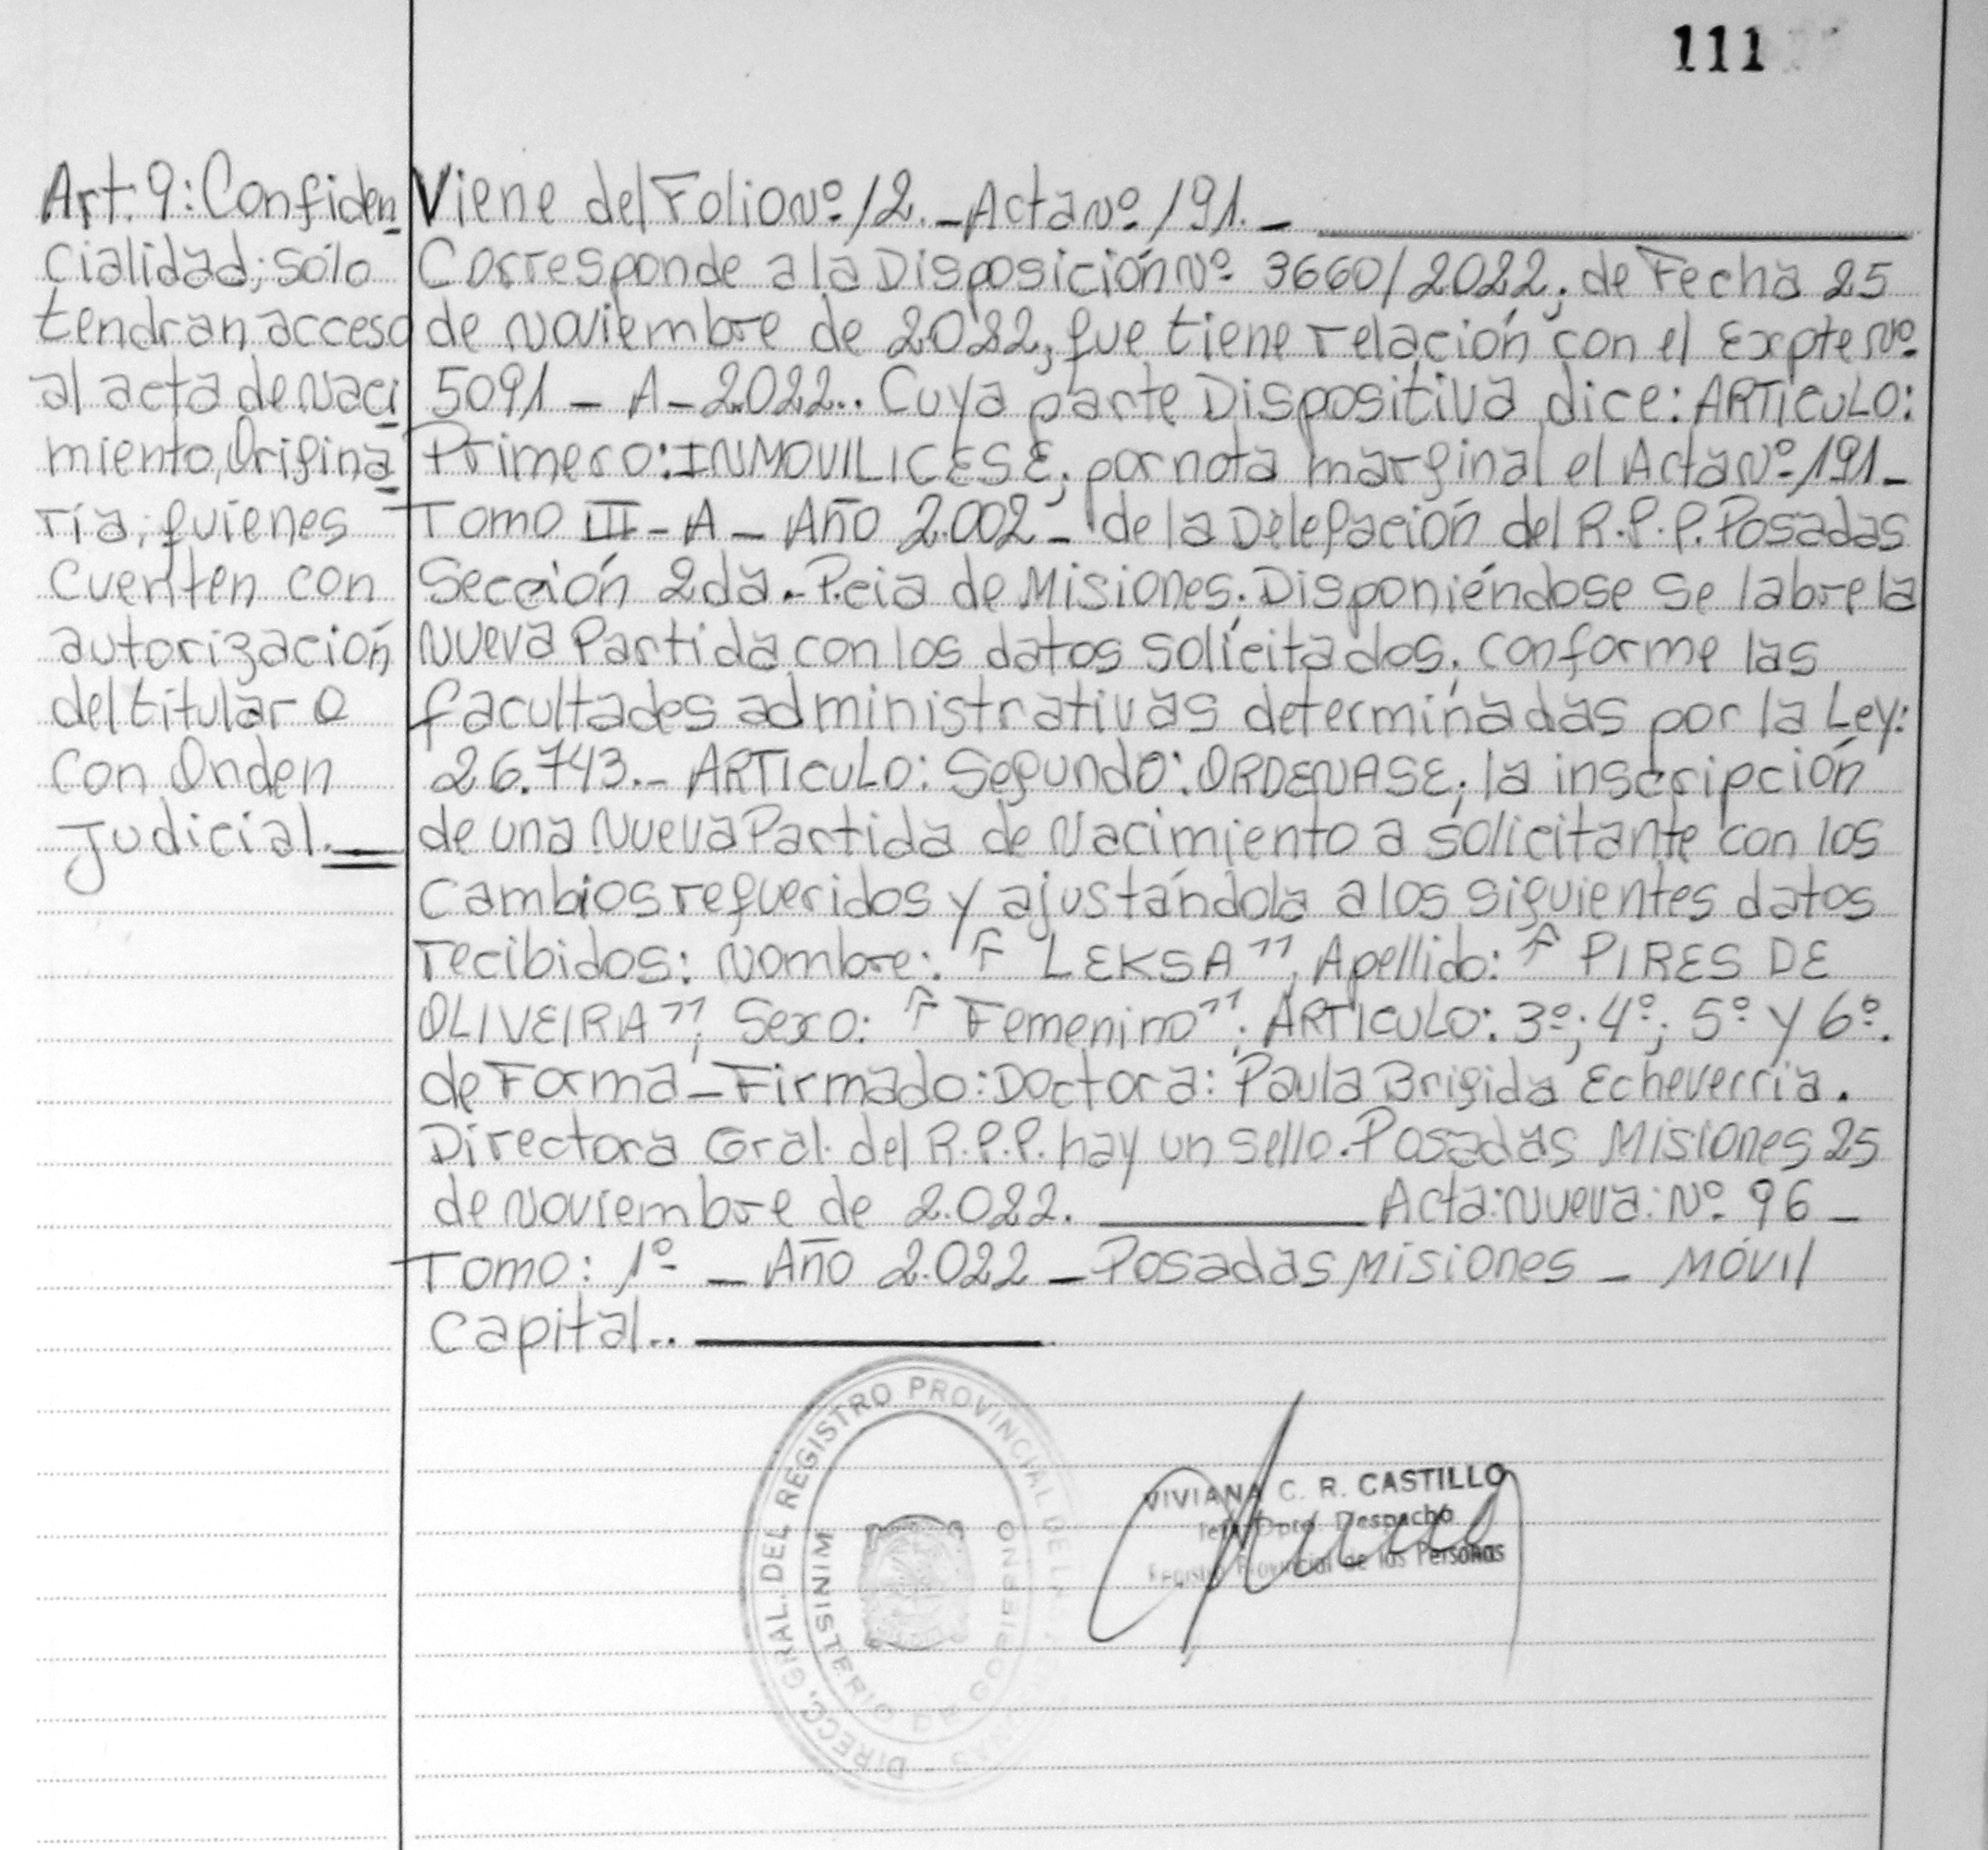 111
Art. 9: Confiden
cialidad; sólo
tendran acceso
al acta de Naci
miento, Origina
ria; quienes
cuenten con
autorización
del titular o
con Orden
Judicial.=
Viene del Folio Nº 12. - Acta Nº 191. -
Corresponde a la Disposición Nº 3660/2022; de Fecha 25
de Noviembre de 2022, que tiene relación con el Expte Nº
5091 - A - 2022.. Cuya parte Dispositiva dice: ARTICULO:
Primero: INMOVILICESE; por nota marginal el Acta Nº 191 -
Tomo III - A - Año 2.002 - de la Delegación del R.P.P. Posadas
Sección 2da. - Pcia de Misiones. Disponiéndose se labre la
Nueva Partida con los datos solicitados, conforme las
facultades administrativas determinadas por la Ley:
26.743.- ARTICULO: Segundo: ORDENASE; la inscripción
de una Nueva Partida de Nacimiento a solicitante con los
cambios requeridos y ajustándola a los siguientes datos
recibidos: Nombre: "LEKSA", Apellido: "PIRES DE
OLIVEIRA"; Sexo: "Femenino". ARTICULO: 3º; 4º; 5º y 6º.
de Forma - Firmado: Doctora: Paula Brigida Echeverria.
Directora Gral. del R.P.P. hay un sello. Posadas Misiones 25
de Noviembre de 2.022. Acta: Nueva: Nº 96 -
Tomo: 1º - Año 2.022 - Posadas Misiones - Móvil
Capital..
DIRECC. GRAL. DEL REGISTRO PROVINCIAL DE LAS PERSONAS
MINISTERIO DE GOBIERNO
VIVIANA C. R. CASTILLO
Jefa Dpto. Despacho
Registro Provincial de las Personas